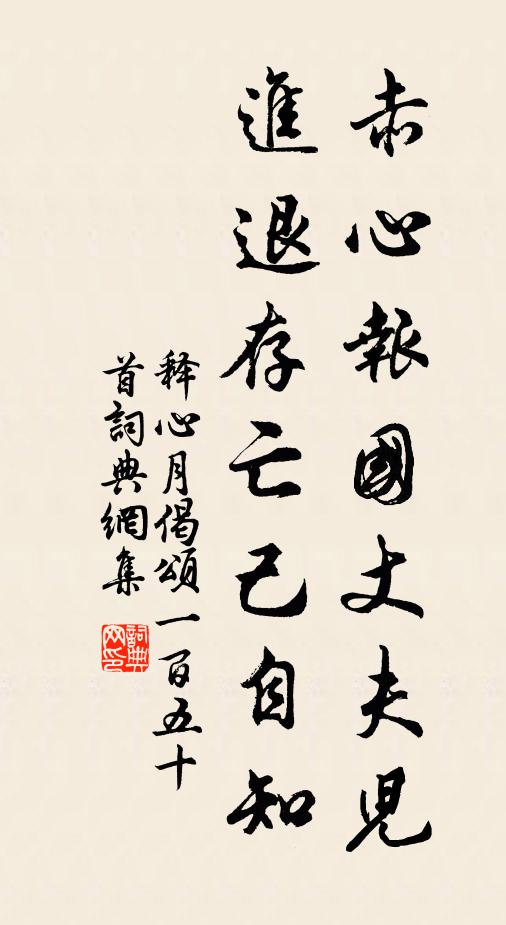 赤心報國丈夫兒
進退存亡已自知
释心月偈頌一百五十
首詞典網集
詞典网印